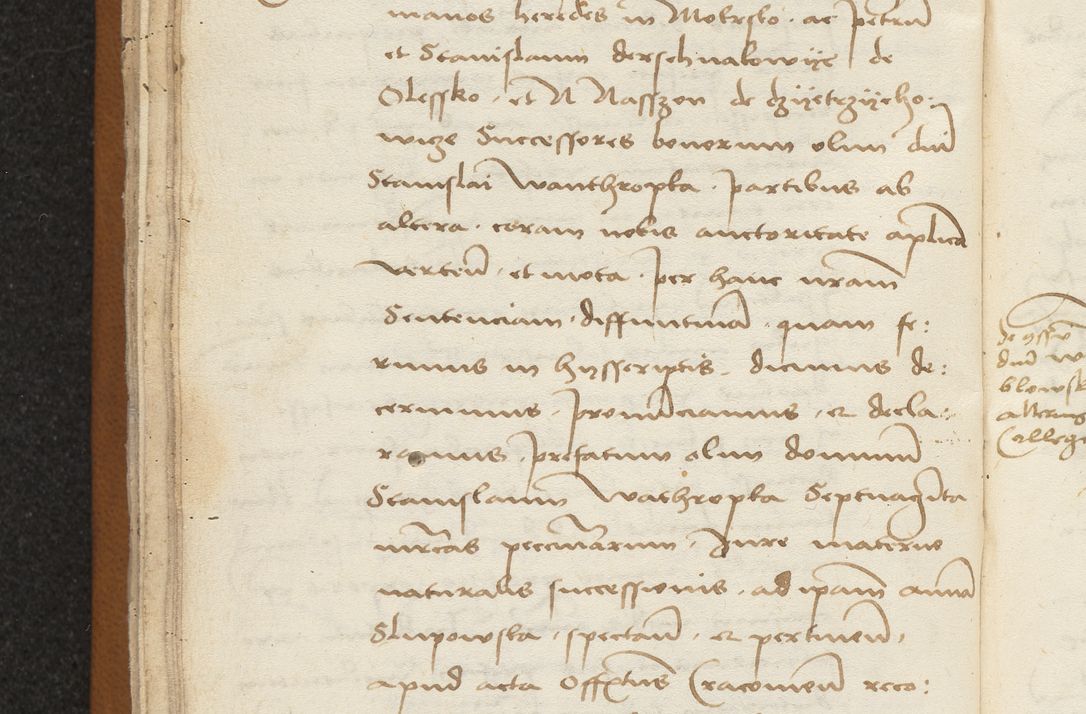 manos heredes in Mokrsko . ac petrum
et Stanislaum derschnakowije de
Olessko . et N Nasszon de dzijeczijcho:
wicze Successores bonorum olim dni
Stanislai Wanthropka . partibus ab
altera . coram nobis auctoritate aplica
verten . et mota . per hanc nram
Sentenciam . diffinitiuam . quam fe:
rimus in hijsscriptis . dicimus de:
cernimus . pronunciamus . et decla:
ramus . prefatum olim dominum
Stanislaum Wathropka Septuaginta
mrcas pecuniarum . Jure materno
naturalis successionis . ad ipam annam
Slupowska . spectan . et pertinen .
apud acta Offitus Cracouien reco:
de
dni
blowsk
alterius
Colleg